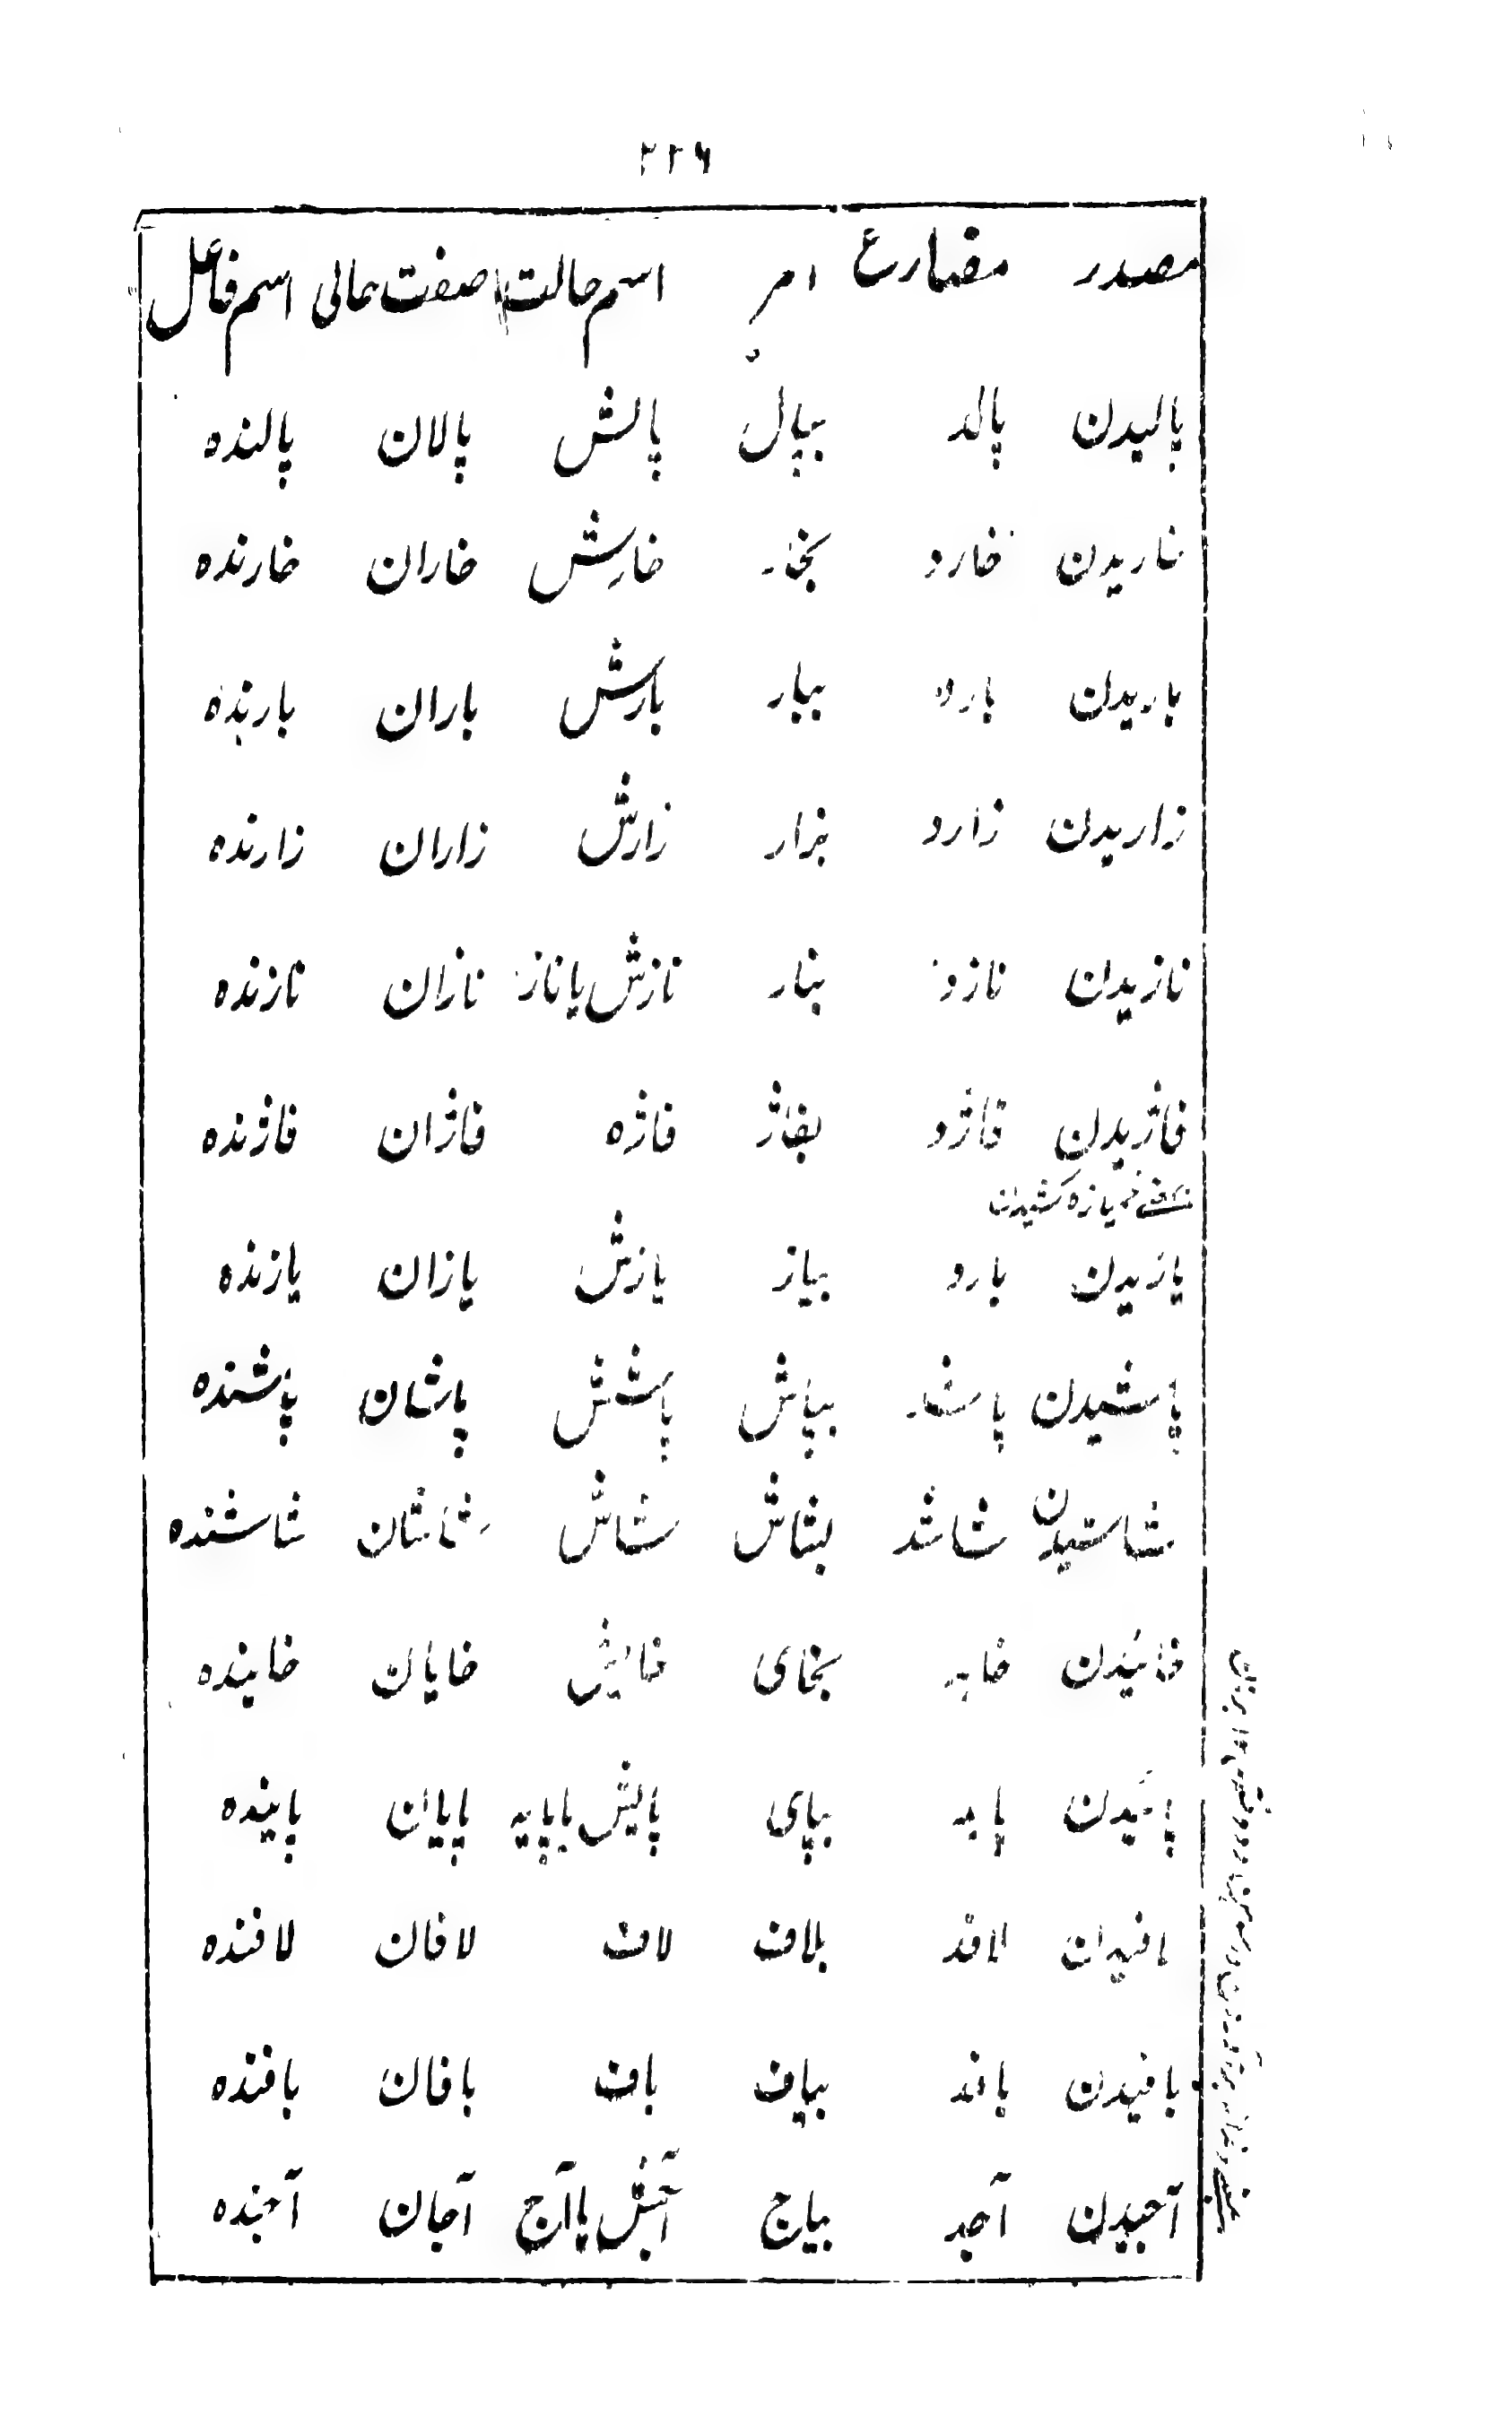 ۲۲۶
مصدر مضارع امر اسم حالت صفت حالی اسم فاعل
پالیدن پالد بپال پالش پالان پالنده
خاریدن خارد بخار خارش خاران خارنده
باریدن بارد ببار بارش باران بارنده
زاریدن زارد بزار زارش زاران زارنده
نازیدن نازد بناز نازش یا ناز نازان نازنده
فاژیدن فاژد بفاژ فاژه فاژان فاژنده
بمعنے خمیازہ کشیدن
یازیدن یازد بیاز یازش یازان یازنده
پاشیدن پاشد بپاش پاشش پاشان پاشنده
شاشیدن شاشد بشاش شاش شاشان شاشنده
خائیدن خاید بخای خایش خایان خاینده
پائیدن پاید بپای پایش یا پایه پایان پاینده
لافیدن لافد بلاف لاف لافان لافنده
بافیدن بافد بباف باف بافان بافنده
آجیدن آجد بیاج آجش یا آج آجان آجنده